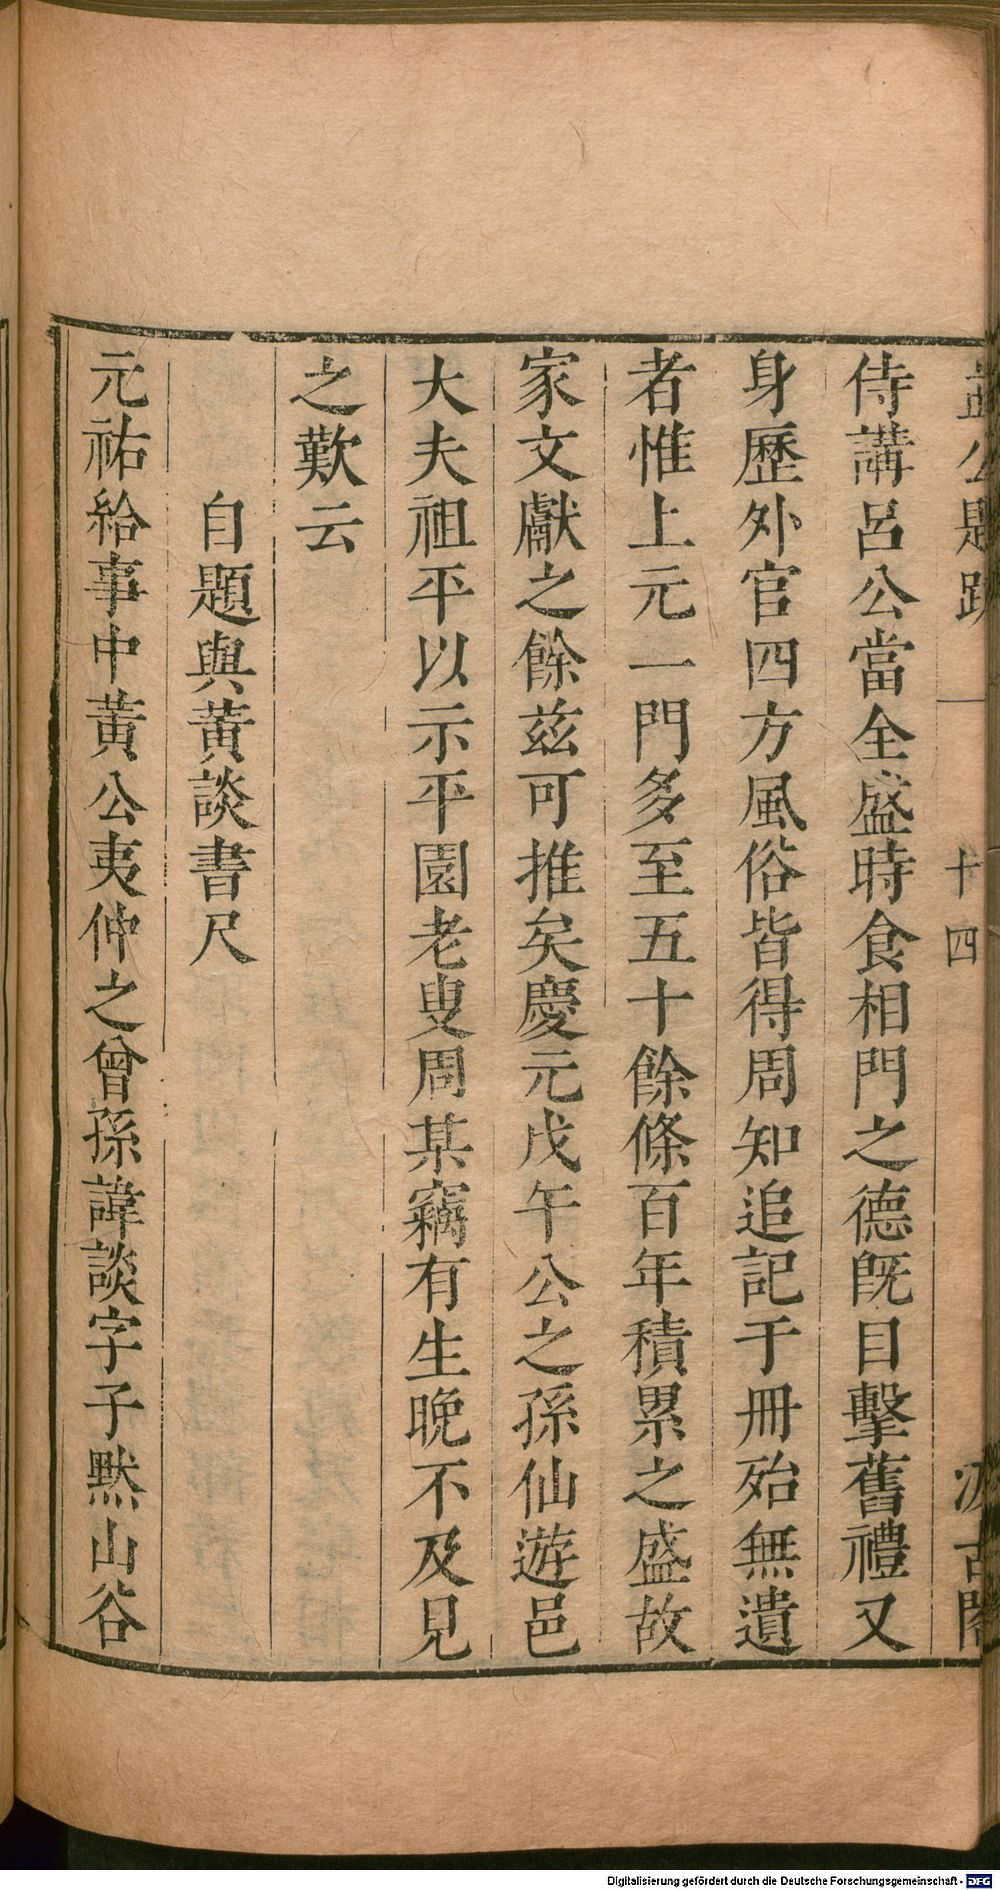 益公題跋 十四 汲古閣
侍講呂公當全盛時食相門之德既目擊舊禮又
身歷外官四方風俗皆得周知追記于冊殆無遺
者惟上元一門多至五十餘條百年積累之盛故
家文獻之餘茲可推矣慶元戊午公之孫仙遊邑
大夫祖平以示平園老叟周某竊有生晚不及見
之歎云
自題與黃談書尺
元祐給事中黃公夷仲之曾孫諱談字子默山谷
Digitalisierung gefördert durch die Deutsche Forschungsgemeinschaft - DFG